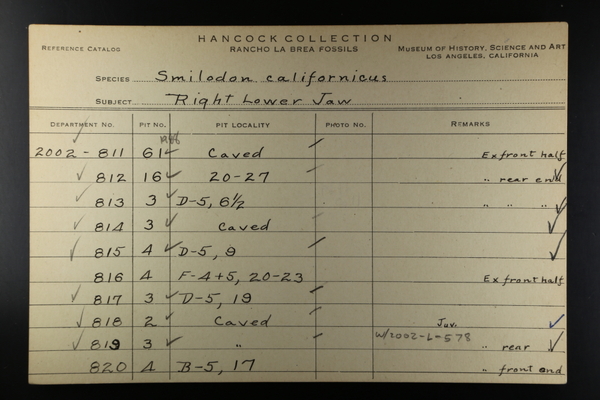 HANCOCK COLLECTION
REFERENCE CATALOG RANCHO LA BREA FOSSILS MUSEUM OF HISTORY, SCIENCE AND ART
LOS ANGELES, CALIFORNIA
SPECIES Smilodon californicus
SUBJECT Right Lower Jaw
DEPARTMENT NO. PIT NO. PIT LOCALITY PHOTO NO. REMARKS
2002-811 61 Caved Ex front half
812 16 20-27 " rear end
813 3 D-5, 6½ " " "
814 3 Caved
815 4 D-5, 9
816 4 F-4+5, 20-23 Ex front half
817 3 D-5, 19
818 2 Caved Juv.
W/2002-L-578
819 3 " " rear
820 4 B-5, 17 " front end